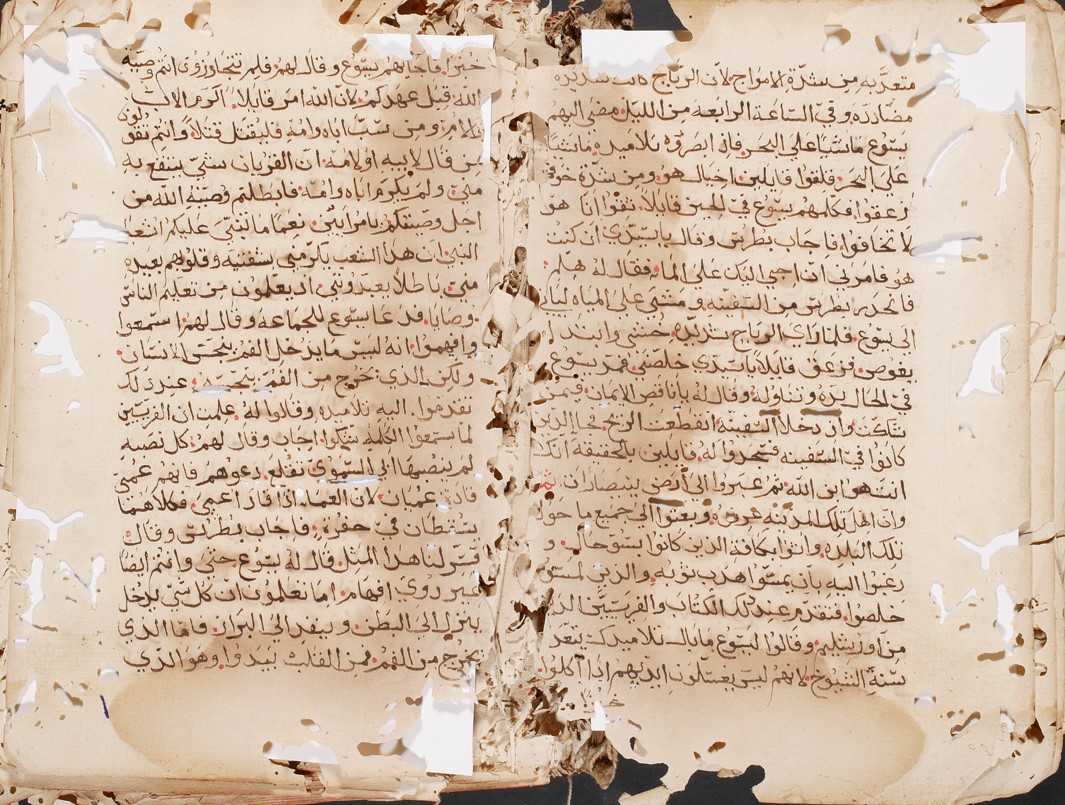 متعذبه من شدة الامواج لان الرياح كانت شديده
مضاددة وفي الساعة الرابعه من الليل مضى اليهم
يسوع ماشيا على البحر فاذ ابصروه تلاميذه ماشيا
على البحر فلقوا قايلين احيال هو ومن شدة خوفهم
زعقوا فكلمهم يسوع في الحين قايلا ثقوا انا هو
لا تخافوا فاجاب بطرس وقال ياسيدي ان كنت
هو فامرني ان اجي اليك على الما فقال له هلم
فانحدر بطرس من السفينه ومشى على المياه لياتي
الى يسوع فلما راى الرياح شديدة خشي وابتدا
يغوص فزعق قايلا ياسيدي خلصني فمد يسوع
في الحال يده وتناوله وقال له ياناقص الايمان فيمن
شككت واذ دخلا السفينه انقطعت الريح فجا الذين
كانوا في السفينه فسجدوا له قايلين بالحقيقه انك
انت هو ابن الله ثم عبروا الى ارض جنيصارات
واذ اهل تلك المدينه عرفوه وبعثوا الى جميع ما حول
تلك البلده واتوا بكافة الذين كانوا بسو حال و
رغبوا اليه بان يمسوا هدب ثوبه والذين لمسوه
خلصوا فتقدم عند ذلك الكتاب والفريسيين الذين
من اورشليم وقالوا ليسوع ما بال تلاميذك تتعدى
سنة الشيوخ لانهم ليس يغتسلون ايديهم اذا اكلوا
خبزا
خبزا فاجابهم يسوع وقال لهم فلم تتجاوزوى انتم وصيه
الله قبل عهدكم لان الله امر قايلا اكرم الاب
والام ومن سب اباه وامه فليقتل قتلا وانتم تقولون
من قال لابيه او لامه ان القربان شي ينتفع به
مني ولم يكرم اباه وامه فابطلتم وصيه الله من
اجل وصيتكم يامرايين نعما ما تنبى عليكم اشعيا
النبي ان هذا الشعب يكرمني بشفتيه وقلوبهم بعيده
مني باطلا يعبدونني اذ يعلمون من تعليم الناس
وصايا فدعا يسوع للجماعه وقال لهم استمعوا
وافهموا انه ليس ما يدخل الفم ينجس الانسان
ولكن الذي يخرج من الفم ينجس عند ذلك
تقدموا اليه تلاميذه وقالوا له علمت ان الفريسيين
لما سمعوا الكلمه شكوا اجاب وقال لهم كل نصبه
لم ينصبها ابي السموي تقلع دعوهم فانهم عمي
قادة عميان لان العما اذا قاد اعمى فكلاهما
يسقطان في حفره فاجاب بطرس وقال
فسر لنا هذا المثل قال له يسوع حتى وانتم ايضا
غير ذوى افهام اما تعلمون ان كل شي يدخل
ينزل الى البطن وينفد الى البراز فاما الذي
يخرج من الفم فمن القلب يبدوا وهو الذي